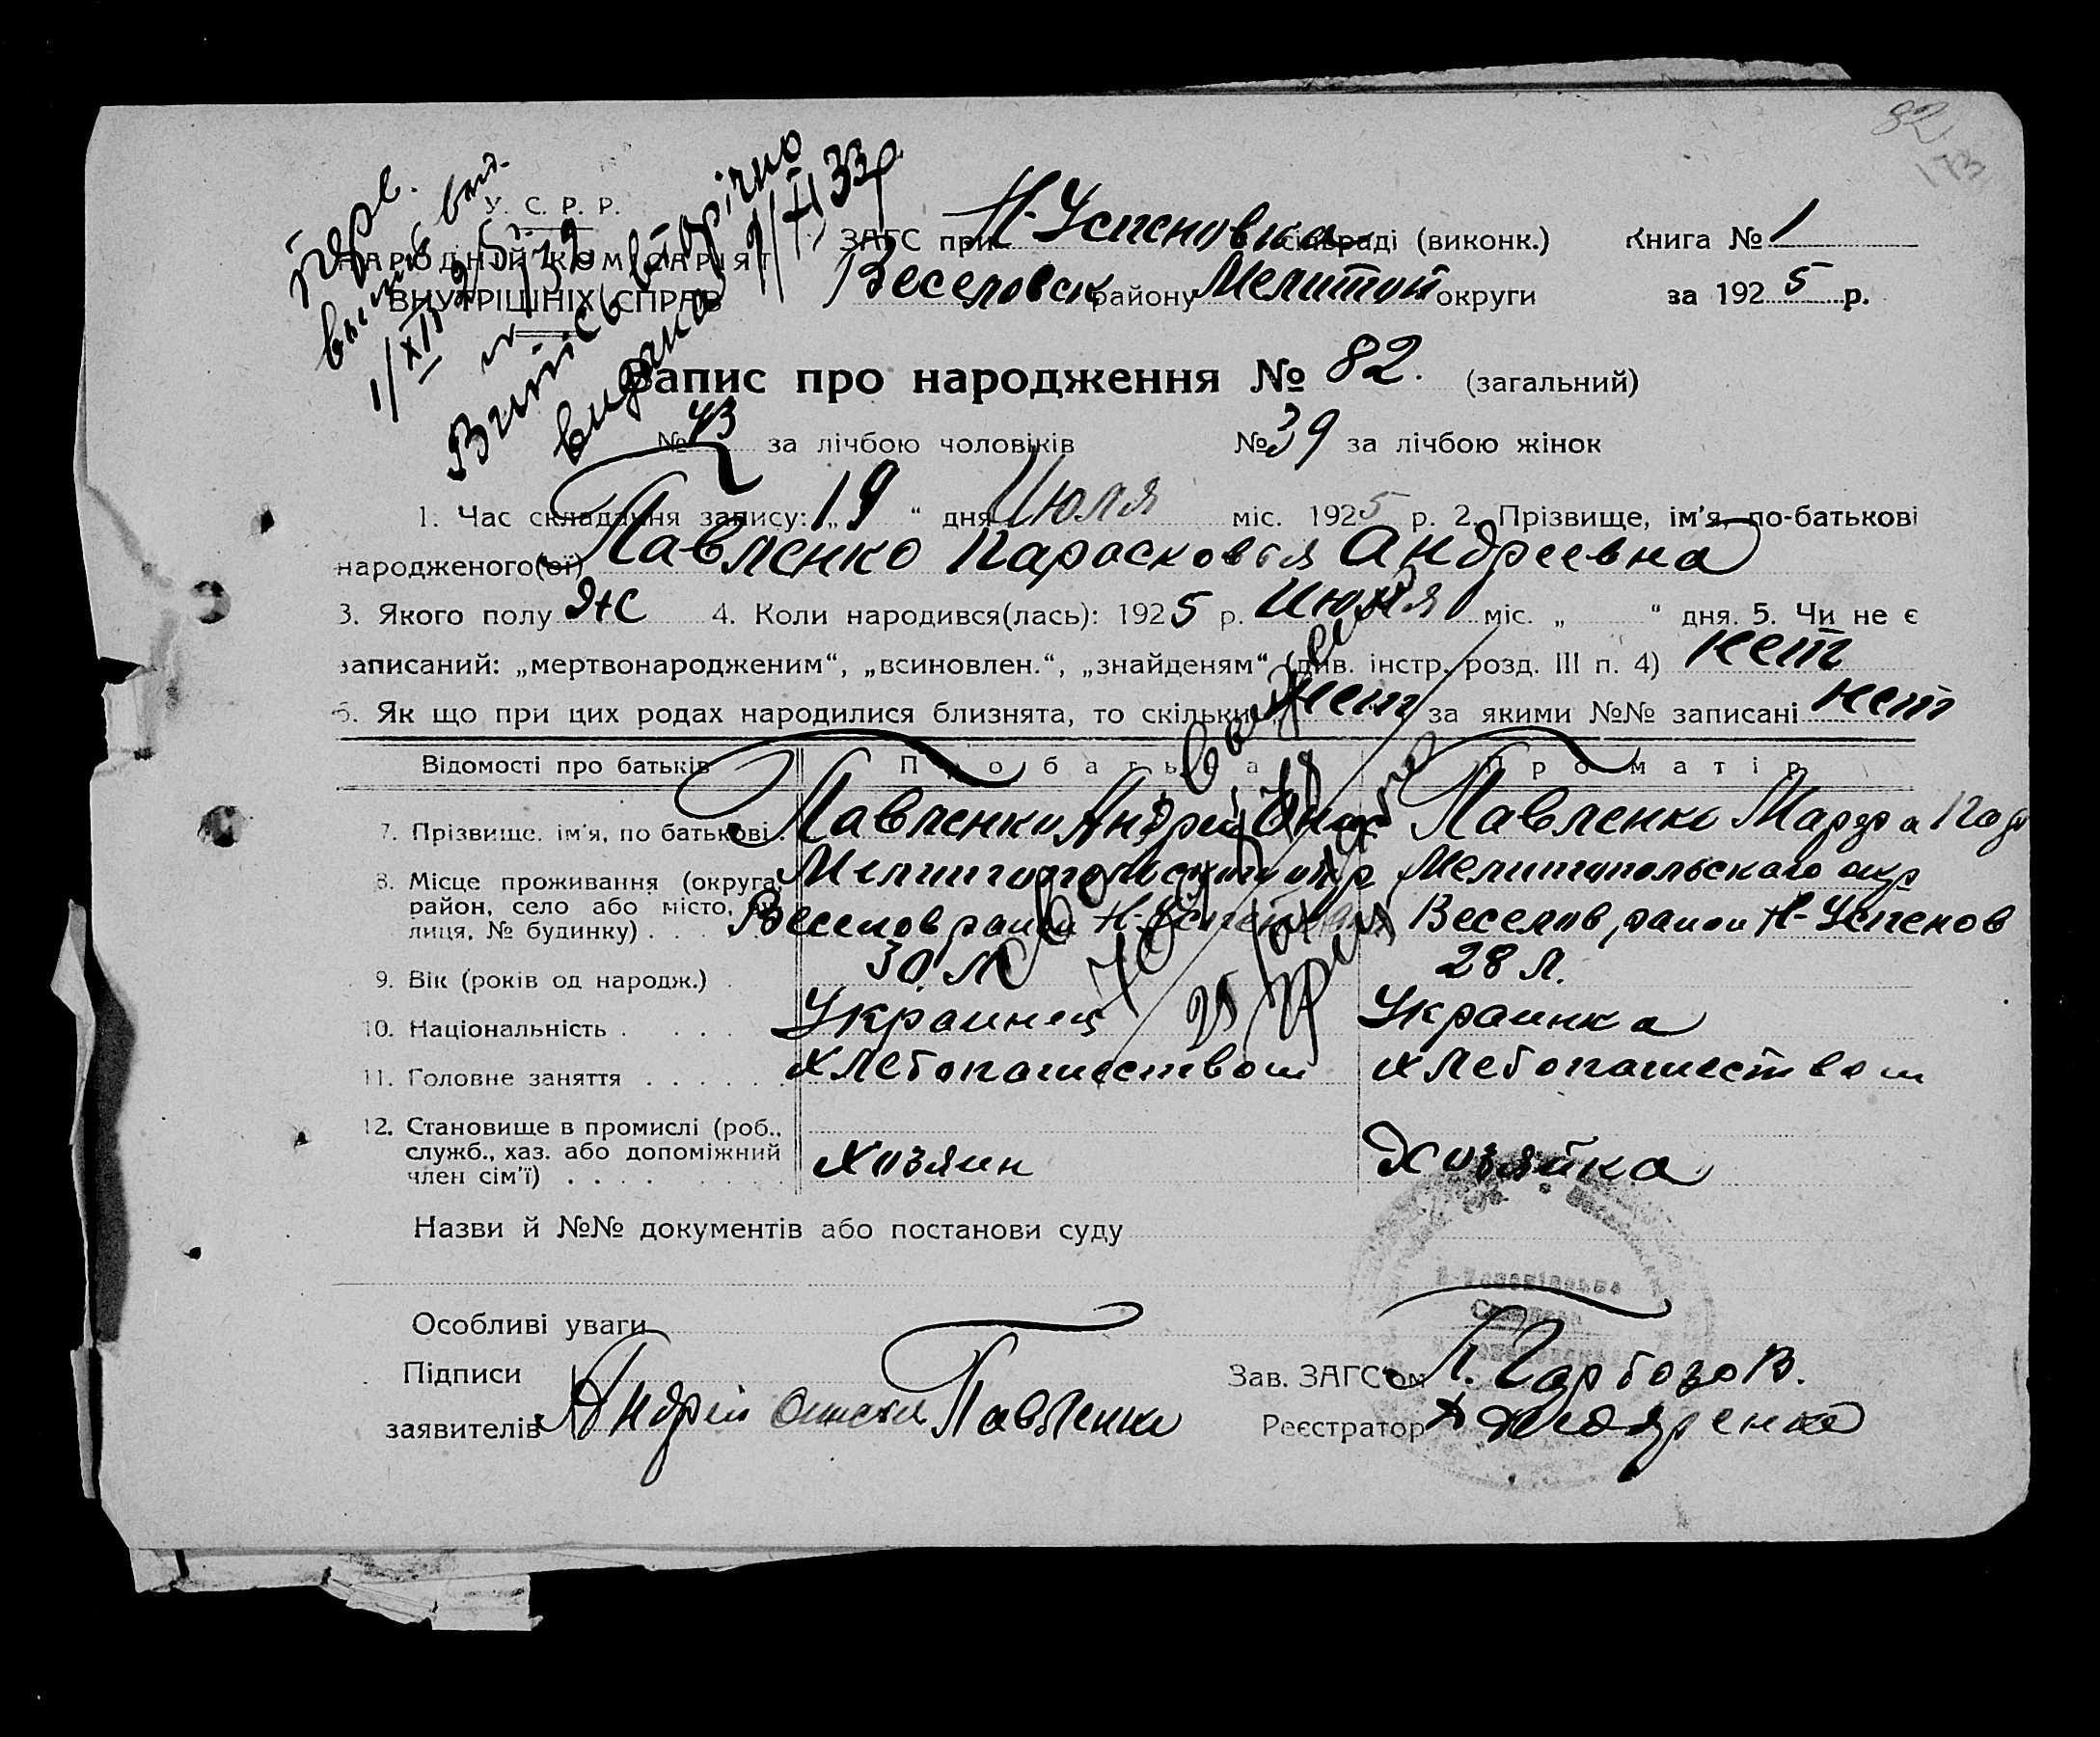 82
173
У. С. Р. Р.
НАРОДНІЙ КОМІСАРІЯТ
ВНУТРІШНІХ СПРАВ
Випись вторічно
видана
ЗАГС при Н-Успеновка сільраді (виконк.) Книга № 1
Веселовск району Мелитоп округи за 1925 р.
Запис про народження № 82. (загальний)
№ 43 за лічбою чоловіків № 39 за лічбою жінок
1. Час складання запису: „19“ дня Июля міс. 1925 р. 2. Прізвище, ім'я, по-батькові
народженого(ої) Павленко Парасковья Андреевна
3. Якого полу Ж 4. Коли народився(лась): 1925 р. міс. „ “ дня. 5. Чи не є
записаний: „мертвонародженим“, „всиновлен.“, „знайденям“ (див. інстр. розд. III п. 4) нет
6. Як що при цих родах народилися близнята, то скільки нет за якими №№ записані нет
Відомості про батьків Про батька Про матір
7. Прізвище, ім'я, по батькові . Павленко Андрей Павленко Марфа
8. Місце проживання (округа, Мелитопольского окр Мелитопольскаго окр
район, село або місто, ву-
лиця, № будинку) . . . Веселов район Н-Успенов Веселов, район Н-Успенов
9. Вік (років од народж.) . 30 л 28 л.
10. Національність . . . . Украинец Украинка
11. Головне заняття . . . . . . хлебопашеством хлебопашеством
12. Становище в промислі (роб.,
служб., хаз. або допоміжний
член сім'ї) . . . . хозяин хозяйка
Назви й №№ документів або постанови суду
Особливі уваги
Підписи
заявителів Андрей Павленко
Зав. ЗАГС'ом П. Гарбозов.
Реєстратор